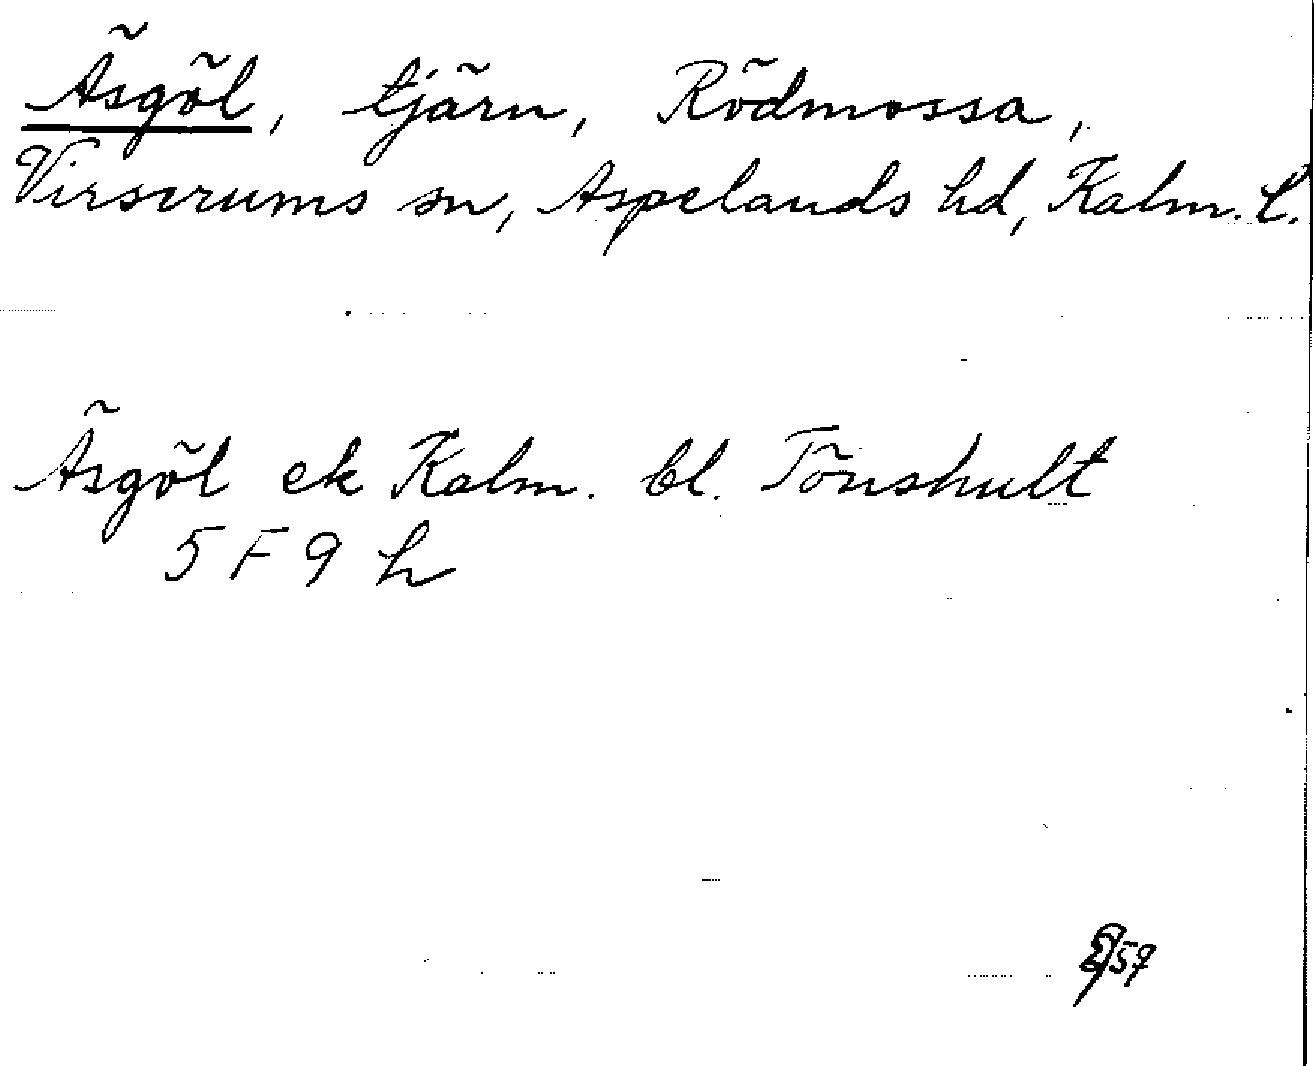 Äsgöl, tjärn, Rödmossa,
Virserums sn, Aspelands hd, Kalm. l.
Äsgöl ek Kalm. bl. Tönshult
5 F 9 h
59